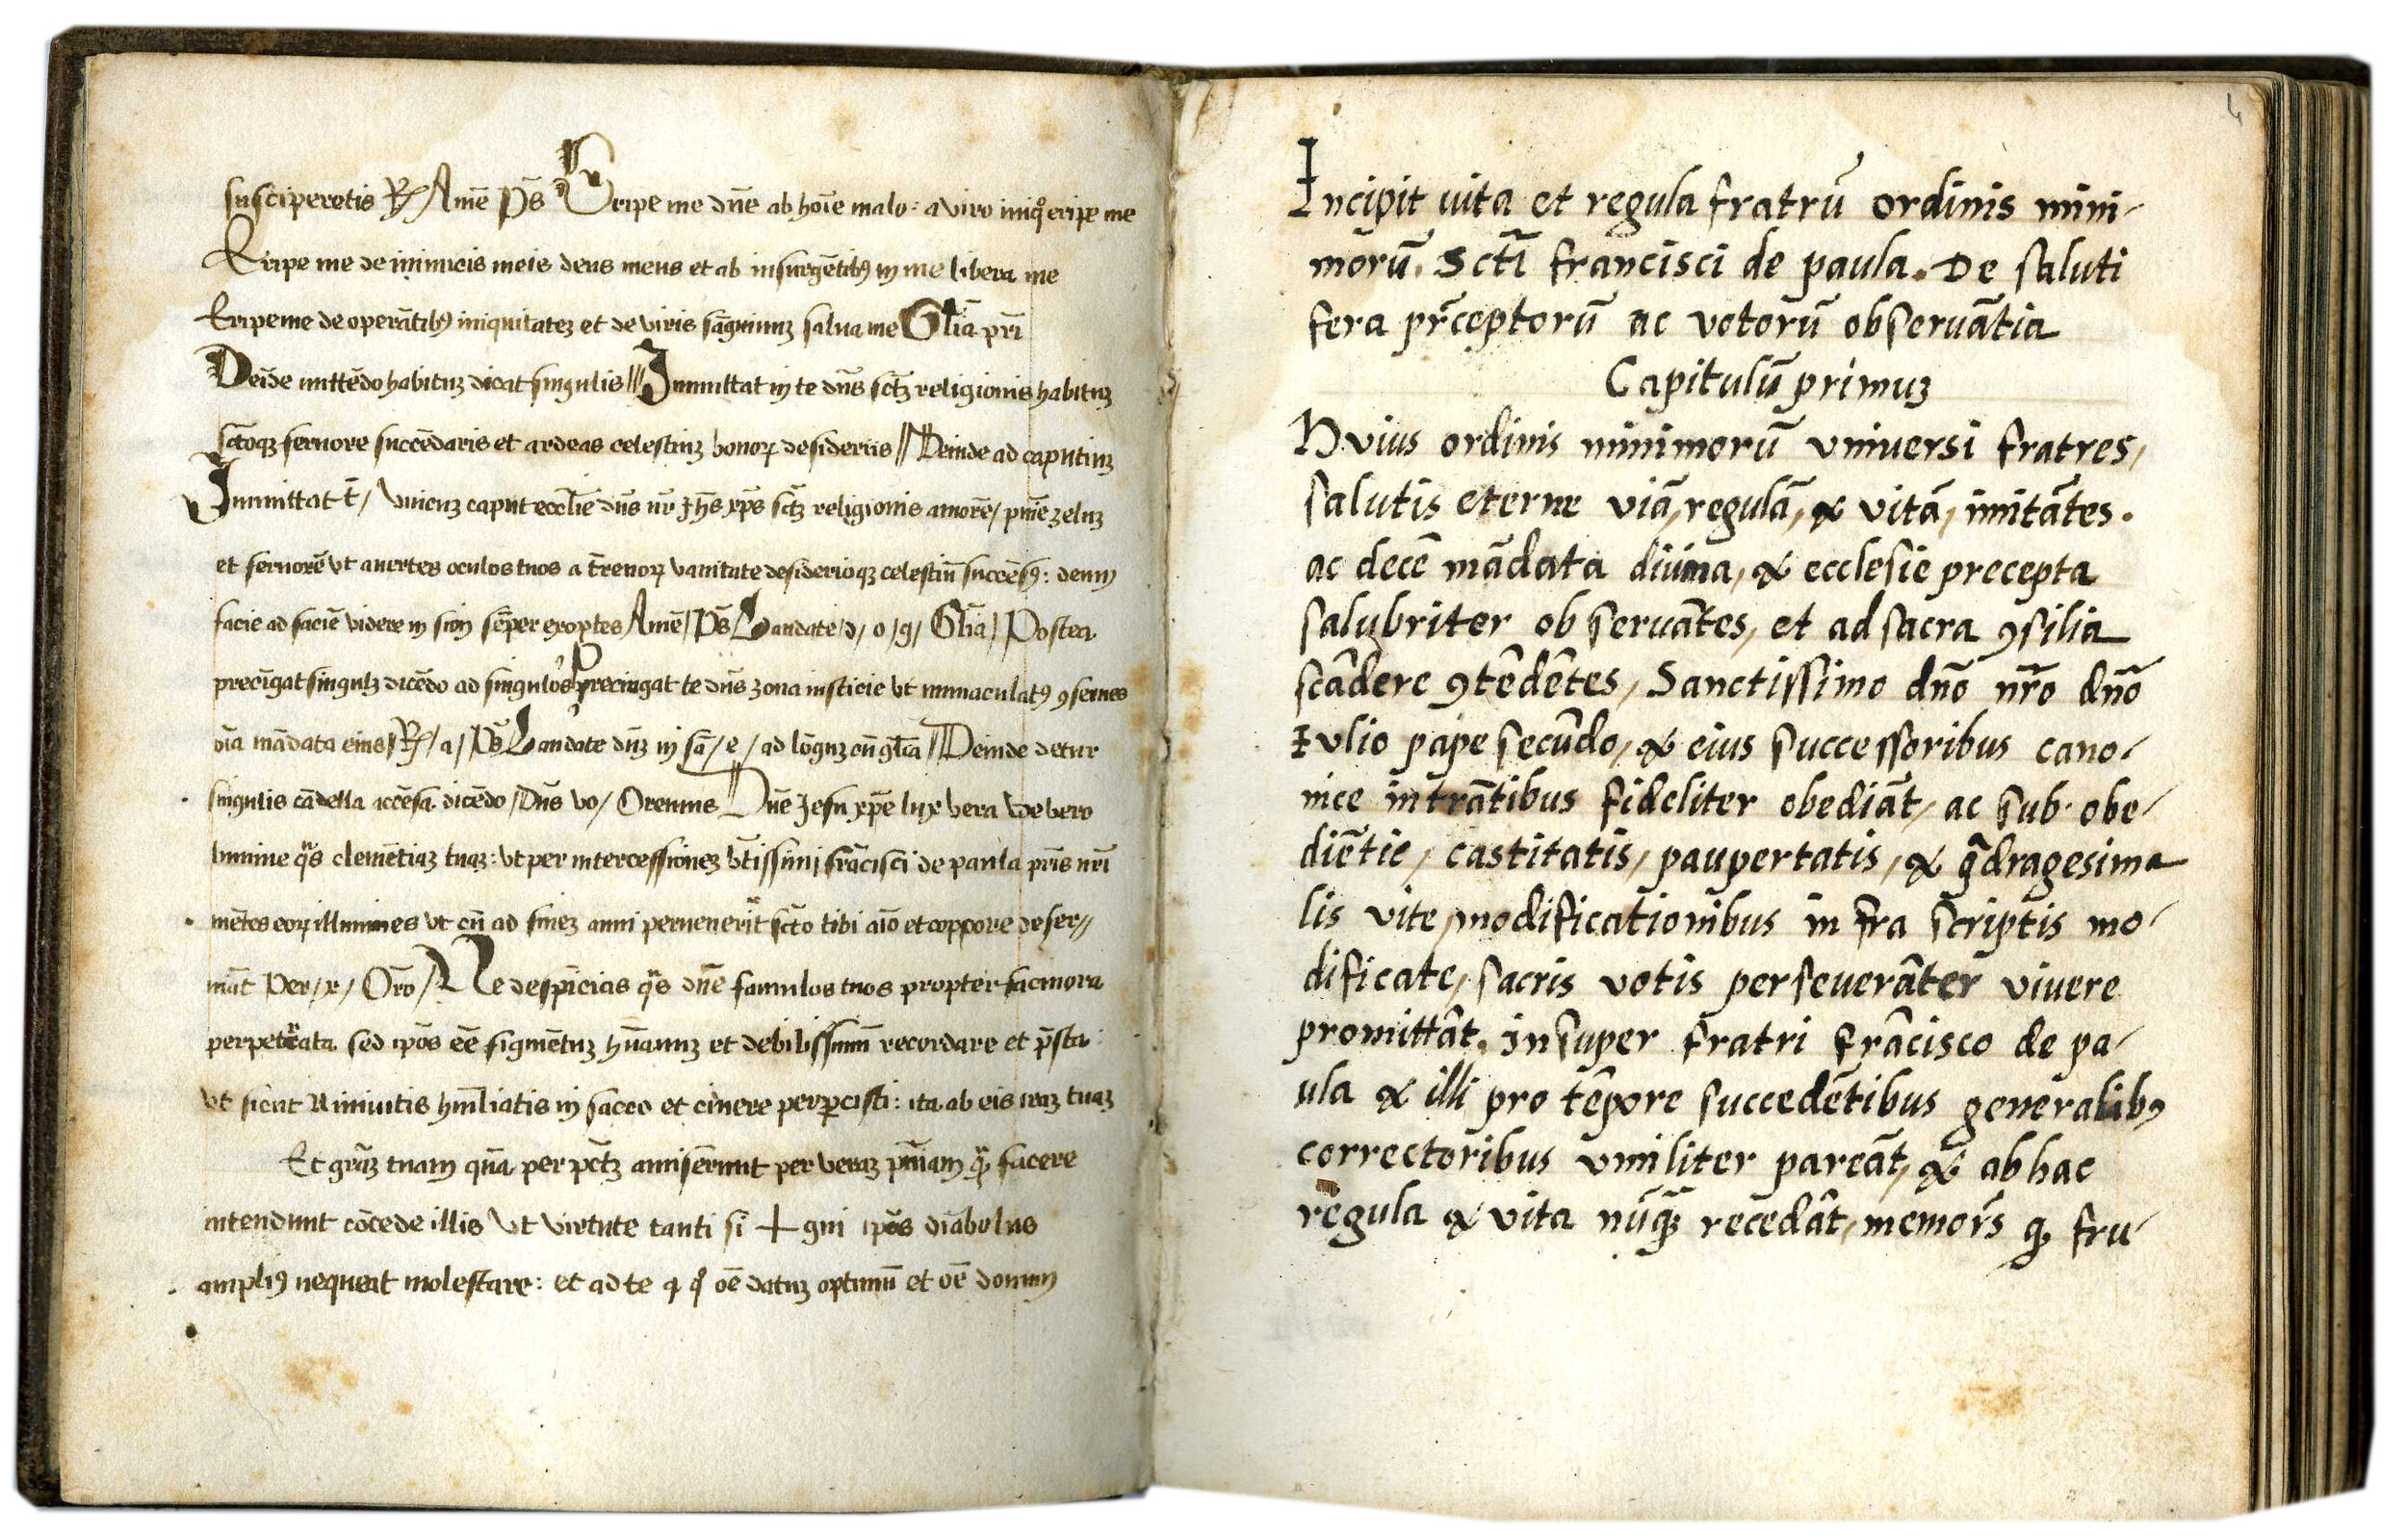 susciperetis ℟ Amē Ps̄ Eripe me dn̄e ab hoīe malo: a viro iniqͦ eripe me
Eripe me de inimicis meis deus meus et ab insurgētibꝰ in me libera me
Eripe me de operātibꝰ iniquitateꝫ et de viris sāguinuꝫ salua me Gl̄ia pr̄i
Deīde mittēdo habituꝫ dicat singulis // Inmittat in te dn̄s sctꝫ̄ religionis habituꝫ
sc̄toqꝫ feruore succēdaris et ardeas celestiuꝫ bonoꝝ desideriis // Deinde ad caputiuꝫ
Inmittat t̄ / Vnicuꝫ caput eccl̄ie dn̄s nr̄ Jh̄s xp̄s sctꝫ̄ religionis amorē / pn̄ie zeluꝫ
et feruorē vt auertes oculos tuos a t̄renoꝝ vanitate desiderioqꝫ celestiū succēsꝰ: demū
facie ad faciē videre in sion sēper exoptes Amē / Ps̄ Laudate / d / o / g / Gl̄ia / Postea
precīgat singulꝫ dicēdo ad singulos Precingat te dn̄s zona iusticie vt inmaculatꝰ ꝯserues
oīa mādata eius / ℟ / a / Ps̄ Laudate dn̄ꝫ in sā / e / ad lōguꝫ cū gl̄ia // Deinde detur
singulis cādella accēsa dicēdo / Dn̄s vo / Oremus Dn̄e Jesu xp̄e lux vera de vero
lumine qͣs clemētiaꝫ tuaꝫ: vt per intercessioneꝫ bt̄issimi frācisci de paula pr̄is nr̄i
mētes eoꝝ illumines vt cū ad fineꝫ anni peruenerīt sct̄o tibi aīo et corpore deser//
uiāt Per / x / Or̄o / Ne despicias qͣs dn̄e famulos tuos propter facinora
perpetrata sed ip̄os eē figmētuꝫ hūanuꝫ et debilissimū recordare et p̄sta
vt sicut niniuitis hūiliatis in sacco et cinere pepercisti: ita ab eis iraꝫ tuaꝫ
Et grāꝫ tuam quā per pctꝫ̄ amiserunt per veraꝫ pn̄iam qͣꝫ facere
intendunt cōcede illis vt virtute tanti si + gni ip̄os diabolus
ampliꝰ nequeat molestare: et ad te a qͦ oē datuꝫ optimū et oē donum
4
Incipit uita et regula fratrū ordinis mini-
morū. Sctī francisci de paula. De saluti
fera pr̄ceptorū ac votorū obseruātia
Capitulū primuꝫ
Huius ordinis minimorū vniuersi fratres,
salutis eterne viā, regulā, & vitā, imitātes.
ac decē mādata diuina, & ecclesie precepta
salubriter obseruātes, et ad sacra ꝯsilia
scādere ꝯtēdētes, Sanctissimo dn̄o nr̄o dn̄o
Iulio pape secūdo, & eius successoribus cano-
nice intrātibus fideliter obediāt, ac sub obe-
diētie, castitatis, paupertatis, & q̄dragesima
lis vite, modificationibus in fra scriptis mo-
dificate, sacris votis perseuerāter viuere
promittāt. insuper fratri frācisco de pa-
ula & illi pro tēpore succedētibus generalibꝰ
correctoribus vmiliter pareāt, & ab hac
regula & vita nūq̄ꝫ recedāt, memor̄s qꝫ fru-